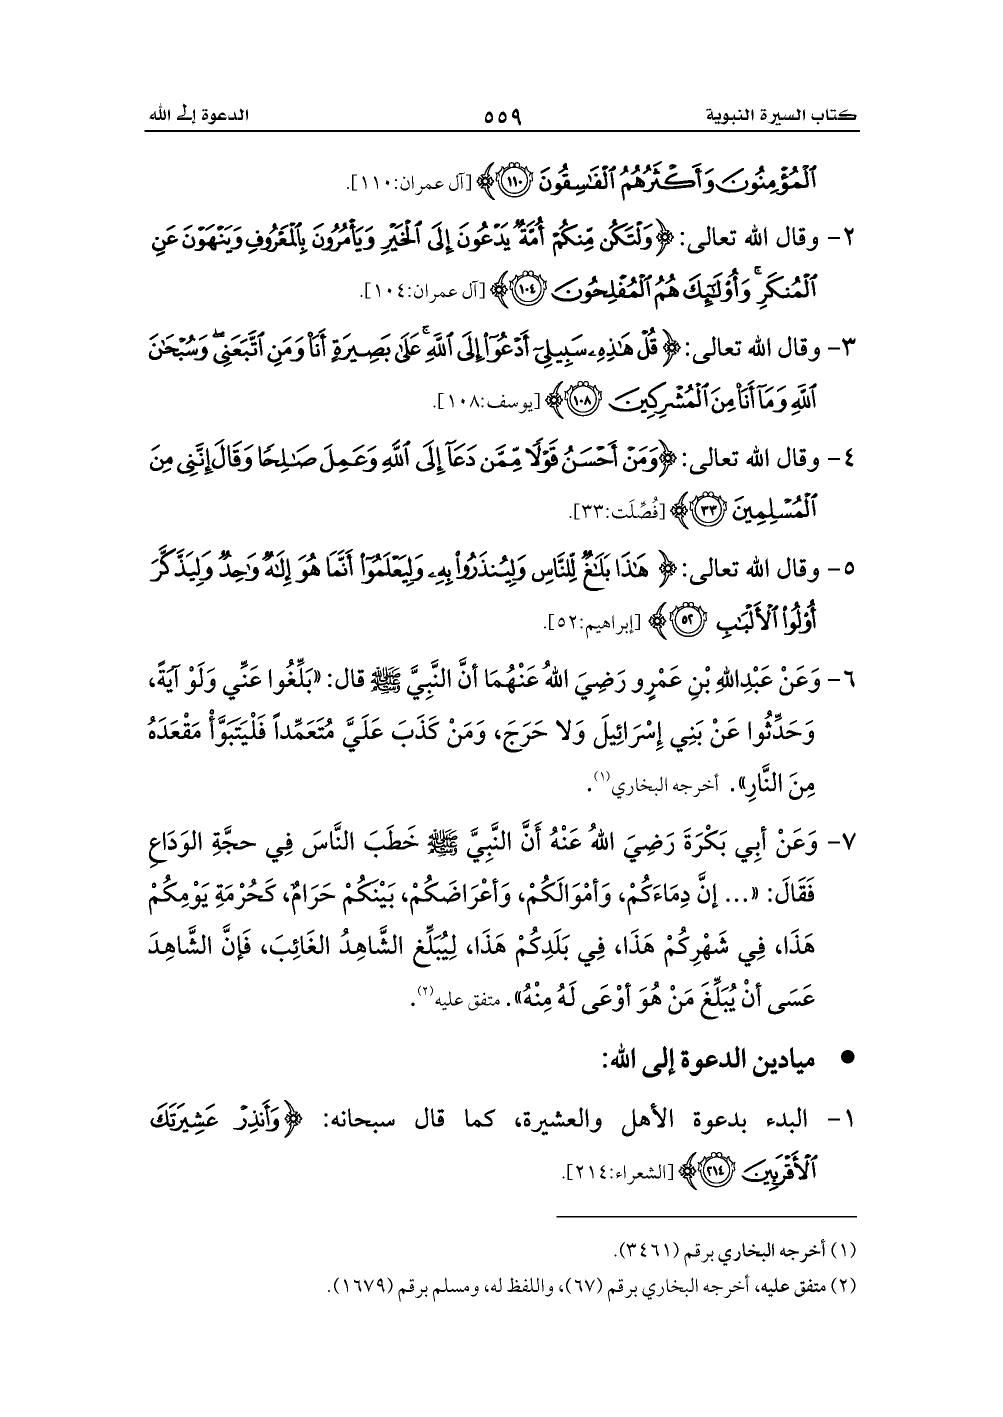 كتاب السيرة النبوية ٥٥٩ الدعوة إلى الله
ٱلْمُؤْمِنُونَ وَأَكْثَرُهُمُ ٱلْفَٰسِقُونَ ﴿١١٠﴾ ﴾ [آل عمران:١١٠].
٢- وقال الله تعالى: ﴿ وَلْتَكُن مِّنكُمْ أُمَّةٌ يَدْعُونَ إِلَى ٱلْخَيْرِ وَيَأْمُرُونَ بِٱلْمَعْرُوفِ وَيَنْهَوْنَ عَنِ
ٱلْمُنكَرِ ۚ وَأُو۟لَٰٓئِكَ هُمُ ٱلْمُفْلِحُونَ ﴿١٠٤﴾ ﴾ [آل عمران:١٠٤].
٣- وقال الله تعالى: ﴿ قُلْ هَٰذِهِۦ سَبِيلِىٓ أَدْعُوٓا۟ إِلَى ٱللَّهِ ۚ عَلَىٰ بَصِيرَةٍ أَنَا۠ وَمَنِ ٱتَّبَعَنِى ۖ وَسُبْحَٰنَ
ٱللَّهِ وَمَآ أَنَا۠ مِنَ ٱلْمُشْرِكِينَ ﴿١٠٨﴾ ﴾ [يوسف:١٠٨].
٤- وقال الله تعالى: ﴿ وَمَنْ أَحْسَنُ قَوْلًا مِّمَّن دَعَآ إِلَى ٱللَّهِ وَعَمِلَ صَٰلِحًا وَقَالَ إِنَّنِى مِنَ
ٱلْمُسْلِمِينَ ﴿٣٣﴾ ﴾ [فُصِّلَت:٣٣].
٥- وقال الله تعالى: ﴿ هَٰذَا بَلَٰغٌ لِّلنَّاسِ وَلِيُنذَرُوا۟ بِهِۦ وَلِيَعْلَمُوٓا۟ أَنَّمَا هُوَ إِلَٰهٌ وَٰحِدٌ وَلِيَذَّكَّرَ
أُو۟لُوا۟ ٱلْأَلْبَٰبِ ﴿٥٢﴾ ﴾ [إبراهيم:٥٢].
٦- وَعَنْ عَبْدِاللهِ بْنِ عَمْرٍو رَضِيَ اللهُ عَنْهُمَا أنَّ النَّبِيَّ ﷺ قال: «بَلِّغُوا عَنِّي وَلَوْ آيَةً،
وَحَدِّثُوا عَنْ بَنِي إسْرَائِيلَ وَلا حَرَجَ، وَمَنْ كَذَبَ عَلَيَّ مُتَعَمِّداً فَلْيَتَبَوَّأْ مَقْعَدَهُ
مِنَ النَّارِ». أخرجه البخاري(١).
٧- وَعَنْ أبِي بَكْرَةَ رَضِيَ اللهُ عَنْهُ أنَّ النَّبِيَّ ﷺ خَطَبَ النَّاسَ فِي حجَّةِ الوَدَاعِ
فَقَالَ: «... إنَّ دِمَاءَكُمْ، وَأمْوَالَكُمْ، وَأعْرَاضَكُمْ، بَيْنَكُمْ حَرَامٌ، كَحُرْمَةِ يَوْمِكُمْ
هَذَا، فِي شَهْرِكُمْ هَذَا، فِي بَلَدِكُمْ هَذَا، لِيُبَلِّغ الشَّاهِدُ الغَائِبَ، فَإنَّ الشَّاهِدَ
عَسَى أنْ يُبَلِّغَ مَنْ هُوَ أوْعَى لَهُ مِنْهُ». متفق عليه(٢).
● ميادين الدعوة إلى الله:
١- البدء بدعوة الأهل والعشيرة، كما قال سبحانه: ﴿ وَأَنذِرْ عَشِيرَتَكَ
ٱلْأَقْرَبِينَ ﴿٢١٤﴾ ﴾ [الشعراء:٢١٤].
(١) أخرجه البخاري برقم (٣٤٦١).
(٢) متفق عليه، أخرجه البخاري برقم (٦٧)، واللفظ له، ومسلم برقم (١٦٧٩).